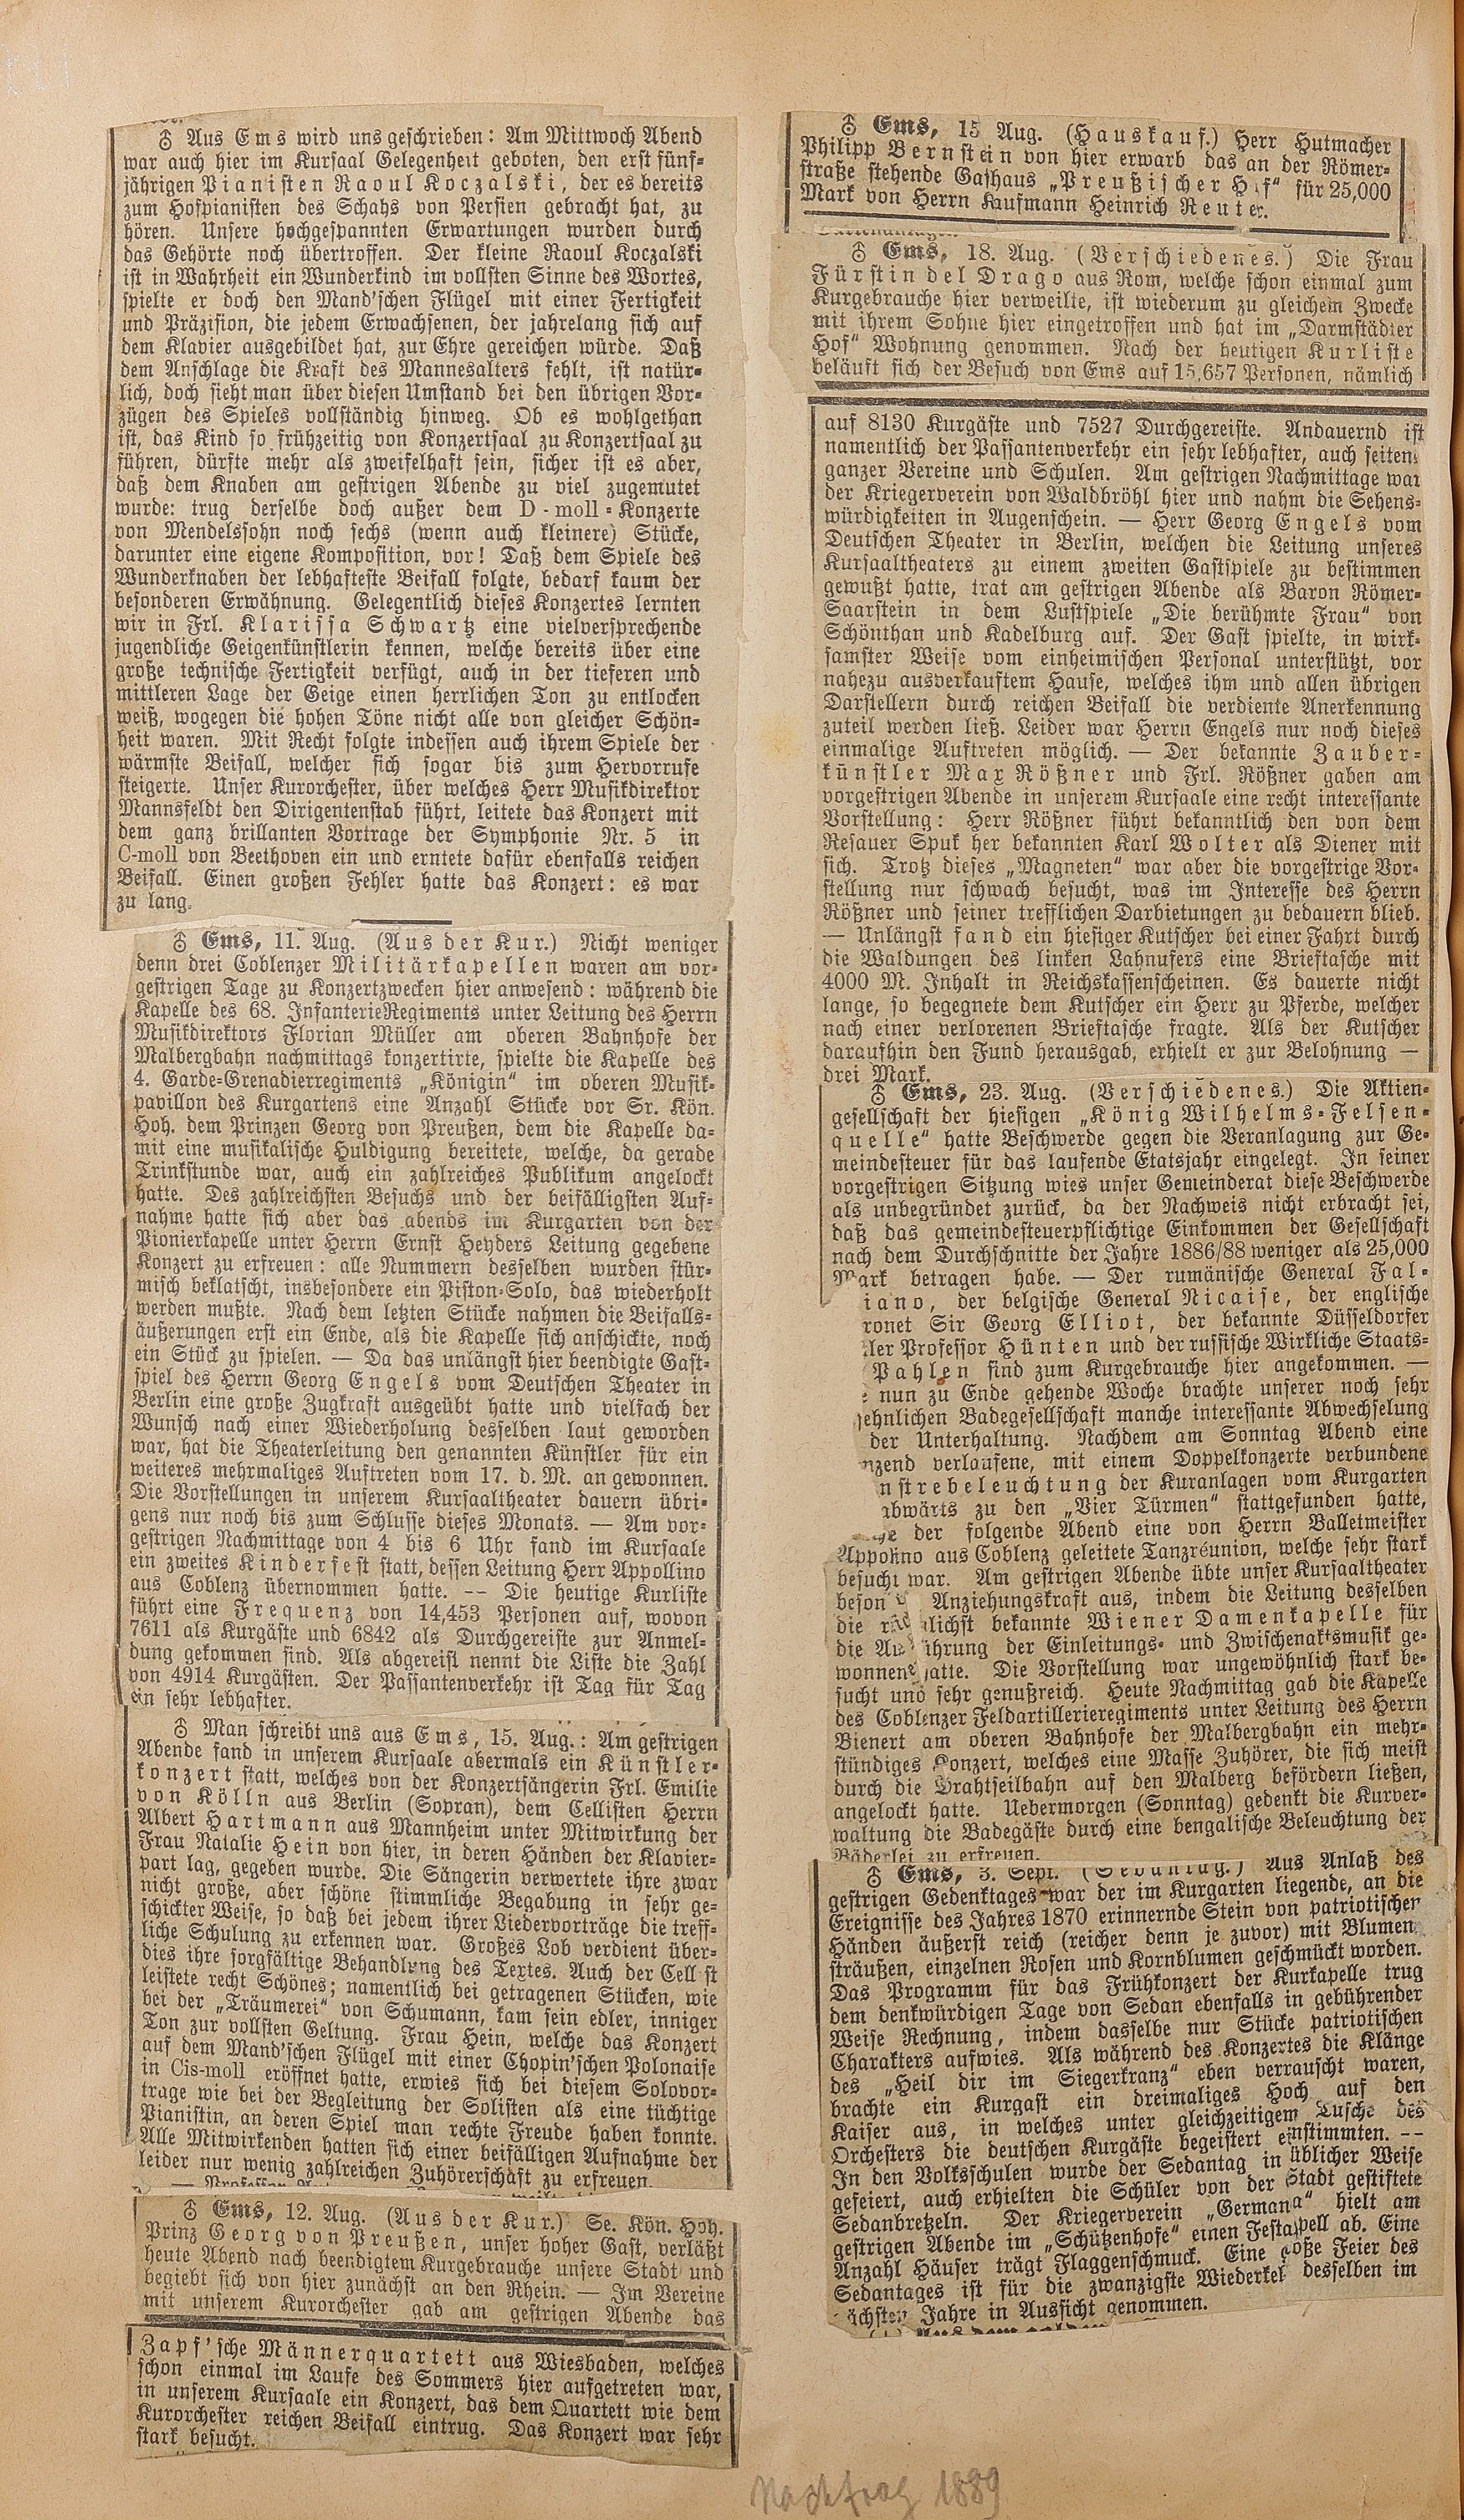 ♁ Aus Ems wird uns geschrieben: Am Mittwoch Abend
war auch hier im Kursaal Gelegenheit geboten, den erst fünf-
jährigen Pianisten Raoul Koczalski, der es bereits
zum Hofpianisten des Schahs von Persien gebracht hat, zu
hören. Unsere hochgespannten Erwartungen wurden durch
das Gehörte noch übertroffen. Der kleine Raoul Koczalski
ist in Wahrheit ein Wunderkind im vollsten Sinne des Wortes,
spielte er doch den Mand'schen Flügel mit einer Fertigkeit
und Präzision, die jedem Erwachsenen, der jahrelang sich auf
dem Klavier ausgebildet hat, zur Ehre gereichen würde. Daß
dem Anschlage die Kraft des Mannesalters fehlt, ist natür-
lich, doch sieht man über diesen Umstand bei den übrigen Vor-
zügen des Spieles vollständig hinweg. Ob es wohlgethan
ist, das Kind so frühzeitig von Konzertsaal zu Konzertsaal zu
führen, dürfte mehr als zweifelhaft sein, sicher ist es aber,
daß dem Knaben am gestrigen Abende zu viel zugemutet
wurde: trug derselbe doch außer dem D-moll-Konzerte
von Mendelssohn noch sechs (wenn auch kleinere) Stücke,
darunter eine eigene Komposition, vor! Daß dem Spiele des
Wunderknaben der lebhafteste Beifall folgte, bedarf kaum der
besonderen Erwähnung. Gelegentlich dieses Konzertes lernten
wir in Frl. Klarissa Schwartz eine vielversprechende
jugendliche Geigenkünstlerin kennen, welche bereits über eine
große technische Fertigkeit verfügt, auch in der tieferen und
mittleren Lage der Geige einen herrlichen Ton zu entlocken
weiß, wogegen die hohen Töne nicht alle von gleicher Schön-
heit waren. Mit Recht folgte indessen auch ihrem Spiele der
wärmste Beifall, welcher sich sogar bis zum Hervorrufe
steigerte. Unser Kurorchester, über welches Herr Musikdirektor
Mannsfeldt den Dirigentenstab führt, leitete das Konzert mit
dem ganz brillanten Vortrage der Symphonie Nr. 5 in
C-moll von Beethoven ein und erntete dafür ebenfalls reichen
Beifall. Einen großen Fehler hatte das Konzert: es war
zu lang.
♁ Ems, 11. Aug. (Aus der Kur.) Nicht weniger
denn drei Coblenzer Militärkapellen waren am vor-
gestrigen Tage zu Konzertzwecken hier anwesend: während die
Kapelle des 68. InfanterieRegiments unter Leitung des Herrn
Musikdirektors Florian Müller am oberen Bahnhofe der
Malbergbahn nachmittags konzertirte, spielte die Kapelle des
4. Garde-Grenadierregiments „Königin“ im oberen Musik-
pavillon des Kurgartens eine Anzahl Stücke vor Sr. Kön.
Hoh. dem Prinzen Georg von Preußen, dem die Kapelle da-
mit eine musikalische Huldigung bereitete, welche, da gerade
Trinkstunde war, auch ein zahlreiches Publikum angelockt
hatte. Des zahlreichsten Besuchs und der beifälligsten Auf-
nahme hatte sich aber das abends im Kurgarten von der
Pionierkapelle unter Herrn Ernst Heyders Leitung gegebene
Konzert zu erfreuen: alle Nummern desselben wurden stür-
misch beklatscht, insbesondere ein Piston-Solo, das wiederholt
werden mußte. Nach dem letzten Stücke nahmen die Beifalls-
äußerungen erst ein Ende, als die Kapelle sich anschickte, noch
ein Stück zu spielen. — Da das unlängst hier beendigte Gast-
spiel des Herrn Georg Engels vom Deutschen Theater in
Berlin eine große Zugkraft ausgeübt hatte und vielfach der
Wunsch nach einer Wiederholung desselben laut geworden
war, hat die Theaterleitung den genannten Künstler für ein
weiteres mehrmaliges Auftreten vom 17. d. M. an gewonnen.
Die Vorstellungen in unserem Kursaaltheater dauern übri-
gens nur noch bis zum Schlusse dieses Monats. — Am vor-
gestrigen Nachmittage von 4 bis 6 Uhr fand im Kursaale
ein zweites Kinderfest statt, dessen Leitung Herr Appollino
aus Coblenz übernommen hatte. -- Die heutige Kurliste
führt eine Frequenz von 14,453 Personen auf, wovon
7611 als Kurgäste und 6842 als Durchgereiste zur Anmel-
dung gekommen sind. Als abgereist nennt die Liste die Zahl
von 4914 Kurgästen. Der Passantenverkehr ist Tag für Tag
ein sehr lebhafter.
♁ Man schreibt uns aus Ems, 15. Aug.: Am gestrigen
Abende fand in unserem Kursaale abermals ein Künstler-
konzert statt, welches von der Konzertsängerin Frl. Emilie
von Kölln aus Berlin (Sopran), dem Cellisten Herrn
Albert Hartmann aus Mannheim unter Mitwirkung der
Frau Natalie Hein von hier, in deren Händen der Klavier-
part lag, gegeben wurde. Die Sängerin verwertete ihre zwar
nicht große, aber schöne stimmliche Begabung in sehr ge-
schickter Weise, so daß bei jedem ihrer Liedervorträge die treff-
liche Schulung zu erkennen war. Großes Lob verdient über-
dies ihre sorgfältige Behandlung des Textes. Auch der Cell st
leistete recht Schönes; namentlich bei getragenen Stücken, wie
bei der „Träumerei“ von Schumann, kam sein edler, inniger
Ton zur vollsten Geltung. Frau Hein, welche das Konzert
auf dem Mand'schen Flügel mit einer Chopin'schen Polonaise
in Cis-moll eröffnet hatte, erwies sich bei diesem Solovor-
trage wie bei der Begleitung der Solisten als eine tüchtige
Pianistin, an deren Spiel man rechte Freude haben konnte.
Alle Mitwirkenden hatten sich einer beifälligen Aufnahme der
leider nur wenig zahlreichen Zuhörerschaft zu erfreuen.
♁ Ems, 12. Aug. (Aus der Kur.) Se. Kön. Hoh.
Prinz Georg von Preußen, unser hoher Gast, verläßt
heute Abend nach beendigtem Kurgebrauche unsere Stadt und
begiebt sich von hier zunächst an den Rhein. — Im Vereine
mit unserem Kurorchester gab am gestrigen Abende das
Zapf'sche Männerquartett aus Wiesbaden, welches
schon einmal im Laufe des Sommers hier aufgetreten war,
in unserem Kursaale ein Konzert, das dem Quartett wie dem
Kurorchester reichen Beifall eintrug. Das Konzert war sehr
stark besucht.
♁ Ems, 15 Aug. (Hauskauf.) Herr Hutmacher
Philipp Bernstein von hier erwarb das an der Römer-
straße stehende Gasthaus „Preußischer H f“ für 25,000
Mark von Herrn Kaufmann Heinrich Reuter.
♁ Ems, 18. Aug. (Verschiedenes.) Die Frau
Fürstin del Drago aus Rom, welche schon einmal zum
Kurgebrauche hier verweilte, ist wiederum zu gleichem Zwecke
mit ihrem Sohne hier eingetroffen und hat im „Darmstädter
Hof“ Wohnung genommen. Nach der heutigen Kurliste
beläuft sich der Besuch von Ems auf 15,657 Personen, nämlich
auf 8130 Kurgäste und 7527 Durchgereiste. Andauernd ist
namentlich der Passantenverkehr ein sehr lebhafter, auch seiten
ganzer Vereine und Schulen. Am gestrigen Nachmittage war
der Kriegerverein von Waldbröhl hier und nahm die Sehens-
würdigkeiten in Augenschein. — Herr Georg Engels vom
Deutschen Theater in Berlin, welchen die Leitung unseres
Kursaaltheaters zu einem zweiten Gastspiele zu bestimmen
gewußt hatte, trat am gestrigen Abende als Baron Römer-
Saarstein in dem Lustspiele „Die berühmte Frau“ von
Schönthan und Kadelburg auf. Der Gast spielte, in wirk-
samster Weise vom einheimischen Personal unterstützt, vor
nahezu ausverkauftem Hause, welches ihm und allen übrigen
Darstellern durch reichen Beifall die verdiente Anerkennung
zuteil werden ließ. Leider war Herrn Engels nur noch dieses
einmalige Auftreten möglich. — Der bekannte Zauber-
künstler Max Rößner und Frl. Rößner gaben am
vorgestrigen Abende in unserem Kursaale eine recht interessante
Vorstellung: Herr Rößner führt bekanntlich den von dem
Resauer Spuk her bekannten Karl Wolter als Diener mit
sich. Trotz dieses „Magneten“ war aber die vorgestrige Vor-
stellung nur schwach besucht, was im Interesse des Herrn
Rößner und seiner trefflichen Darbietungen zu bedauern blieb.
— Unlängst fand ein hiesiger Kutscher bei einer Fahrt durch
die Waldungen des linken Lahnufers eine Brieftasche mit
4000 M. Inhalt in Reichskassenscheinen. Es dauerte nicht
lange, so begegnete dem Kutscher ein Herr zu Pferde, welcher
nach einer verlorenen Brieftasche fragte. Als der Kutscher
daraufhin den Fund herausgab, erhielt er zur Belohnung —
drei Mark.
♁ Ems, 23. Aug. (Verschiedenes.) Die Aktien-
gesellschaft der hiesigen „König Wilhelms-Felsen-
quelle“ hatte Beschwerde gegen die Veranlagung zur Ge-
meindesteuer für das laufende Etatsjahr eingelegt. In seiner
vorgestrigen Sitzung wies unser Gemeinderat diese Beschwerde
als unbegründet zurück, da der Nachweis nicht erbracht sei,
daß das gemeindesteuerpflichtige Einkommen der Gesellschaft
nach dem Durchschnitte der Jahre 1886/88 weniger als 25,000
Mark betragen habe. — Der rumänische General Fal-
iano, der belgische General Nicaise, der englische
ronet Sir Georg Elliot, der bekannte Düsseldorfer
ler Professor Hünten und der russische Wirkliche Staats-
Pahlen sind zum Kurgebrauche hier angekommen. —
e nun zu Ende gehende Woche brachte unserer noch sehr
sehnlichen Badegesellschaft manche interessante Abwechselung
der Unterhaltung. Nachdem am Sonntag Abend eine
nzend verlaufene, mit einem Doppelkonzerte verbundene
nstrebeleuchtung der Kuranlagen vom Kurgarten
abwärts zu den „Vier Türmen“ stattgefunden hatte,
der folgende Abend eine von Herrn Balletmeister
Appolino aus Coblenz geleitete Tanzréunion, welche sehr stark
besucht war. Am gestrigen Abende übte unser Kursaaltheater
beson Anziehungskraft aus, indem die Leitung desselben
die r lichst bekannte Wiener Damenkapelle für
die Au ührung der Einleitungs- und Zwischenaktsmusik ge-
wonnen hatte. Die Vorstellung war ungewöhnlich stark be-
sucht und sehr genußreich. Heute Nachmittag gab die Kapelle
des Coblenzer Feldartillerieregiments unter Leitung des Herrn
Bienert am oberen Bahnhofe der Malbergbahn ein mehr-
stündiges Konzert, welches eine Masse Zuhörer, die sich meist
durch die Drahtseilbahn auf den Malberg befördern ließen,
angelockt hatte. Uebermorgen (Sonntag) gedenkt die Kurver-
waltung die Badegäste durch eine bengalische Beleuchtung der
Bäderlei zu erfreuen.
♁ Ems, 3. Sept. (Sedantag.) Aus Anlaß des
gestrigen Gedenktages war der im Kurgarten liegende, an die
Ereignisse des Jahres 1870 erinnernde Stein von patriotischen
Händen äußerst reich (reicher denn je zuvor) mit Blumen
sträußen, einzelnen Rosen und Kornblumen geschmückt worden.
Das Programm für das Frühkonzert der Kurkapelle trug
dem denkwürdigen Tage von Sedan ebenfalls in gebührender
Weise Rechnung, indem dasselbe nur Stücke patriotischen
Charakters aufwies. Als während des Konzertes die Klänge
des „Heil dir im Siegerkranz“ eben verrauscht waren,
brachte ein Kurgast ein dreimaliges Hoch auf den
Kaiser aus, in welches unter gleichzeitigem Tusche des
Orchesters die deutschen Kurgäste begeistert einstimmten. --
In den Volksschulen wurde der Sedantag in üblicher Weise
gefeiert, auch erhielten die Schüler von der Stadt gestiftete
Sedanbretzeln. Der Kriegerverein „Germana“ hielt am
gestrigen Abende im „Schützenhofe“ einen Festappell ab. Eine
Anzahl Häuser trägt Flaggenschmuck. Eine große Feier des
Sedantages ist für die zwanzigste Wiederkehr desselben im
ächsten Jahre in Aussicht genommen.
Nachtrag 1889